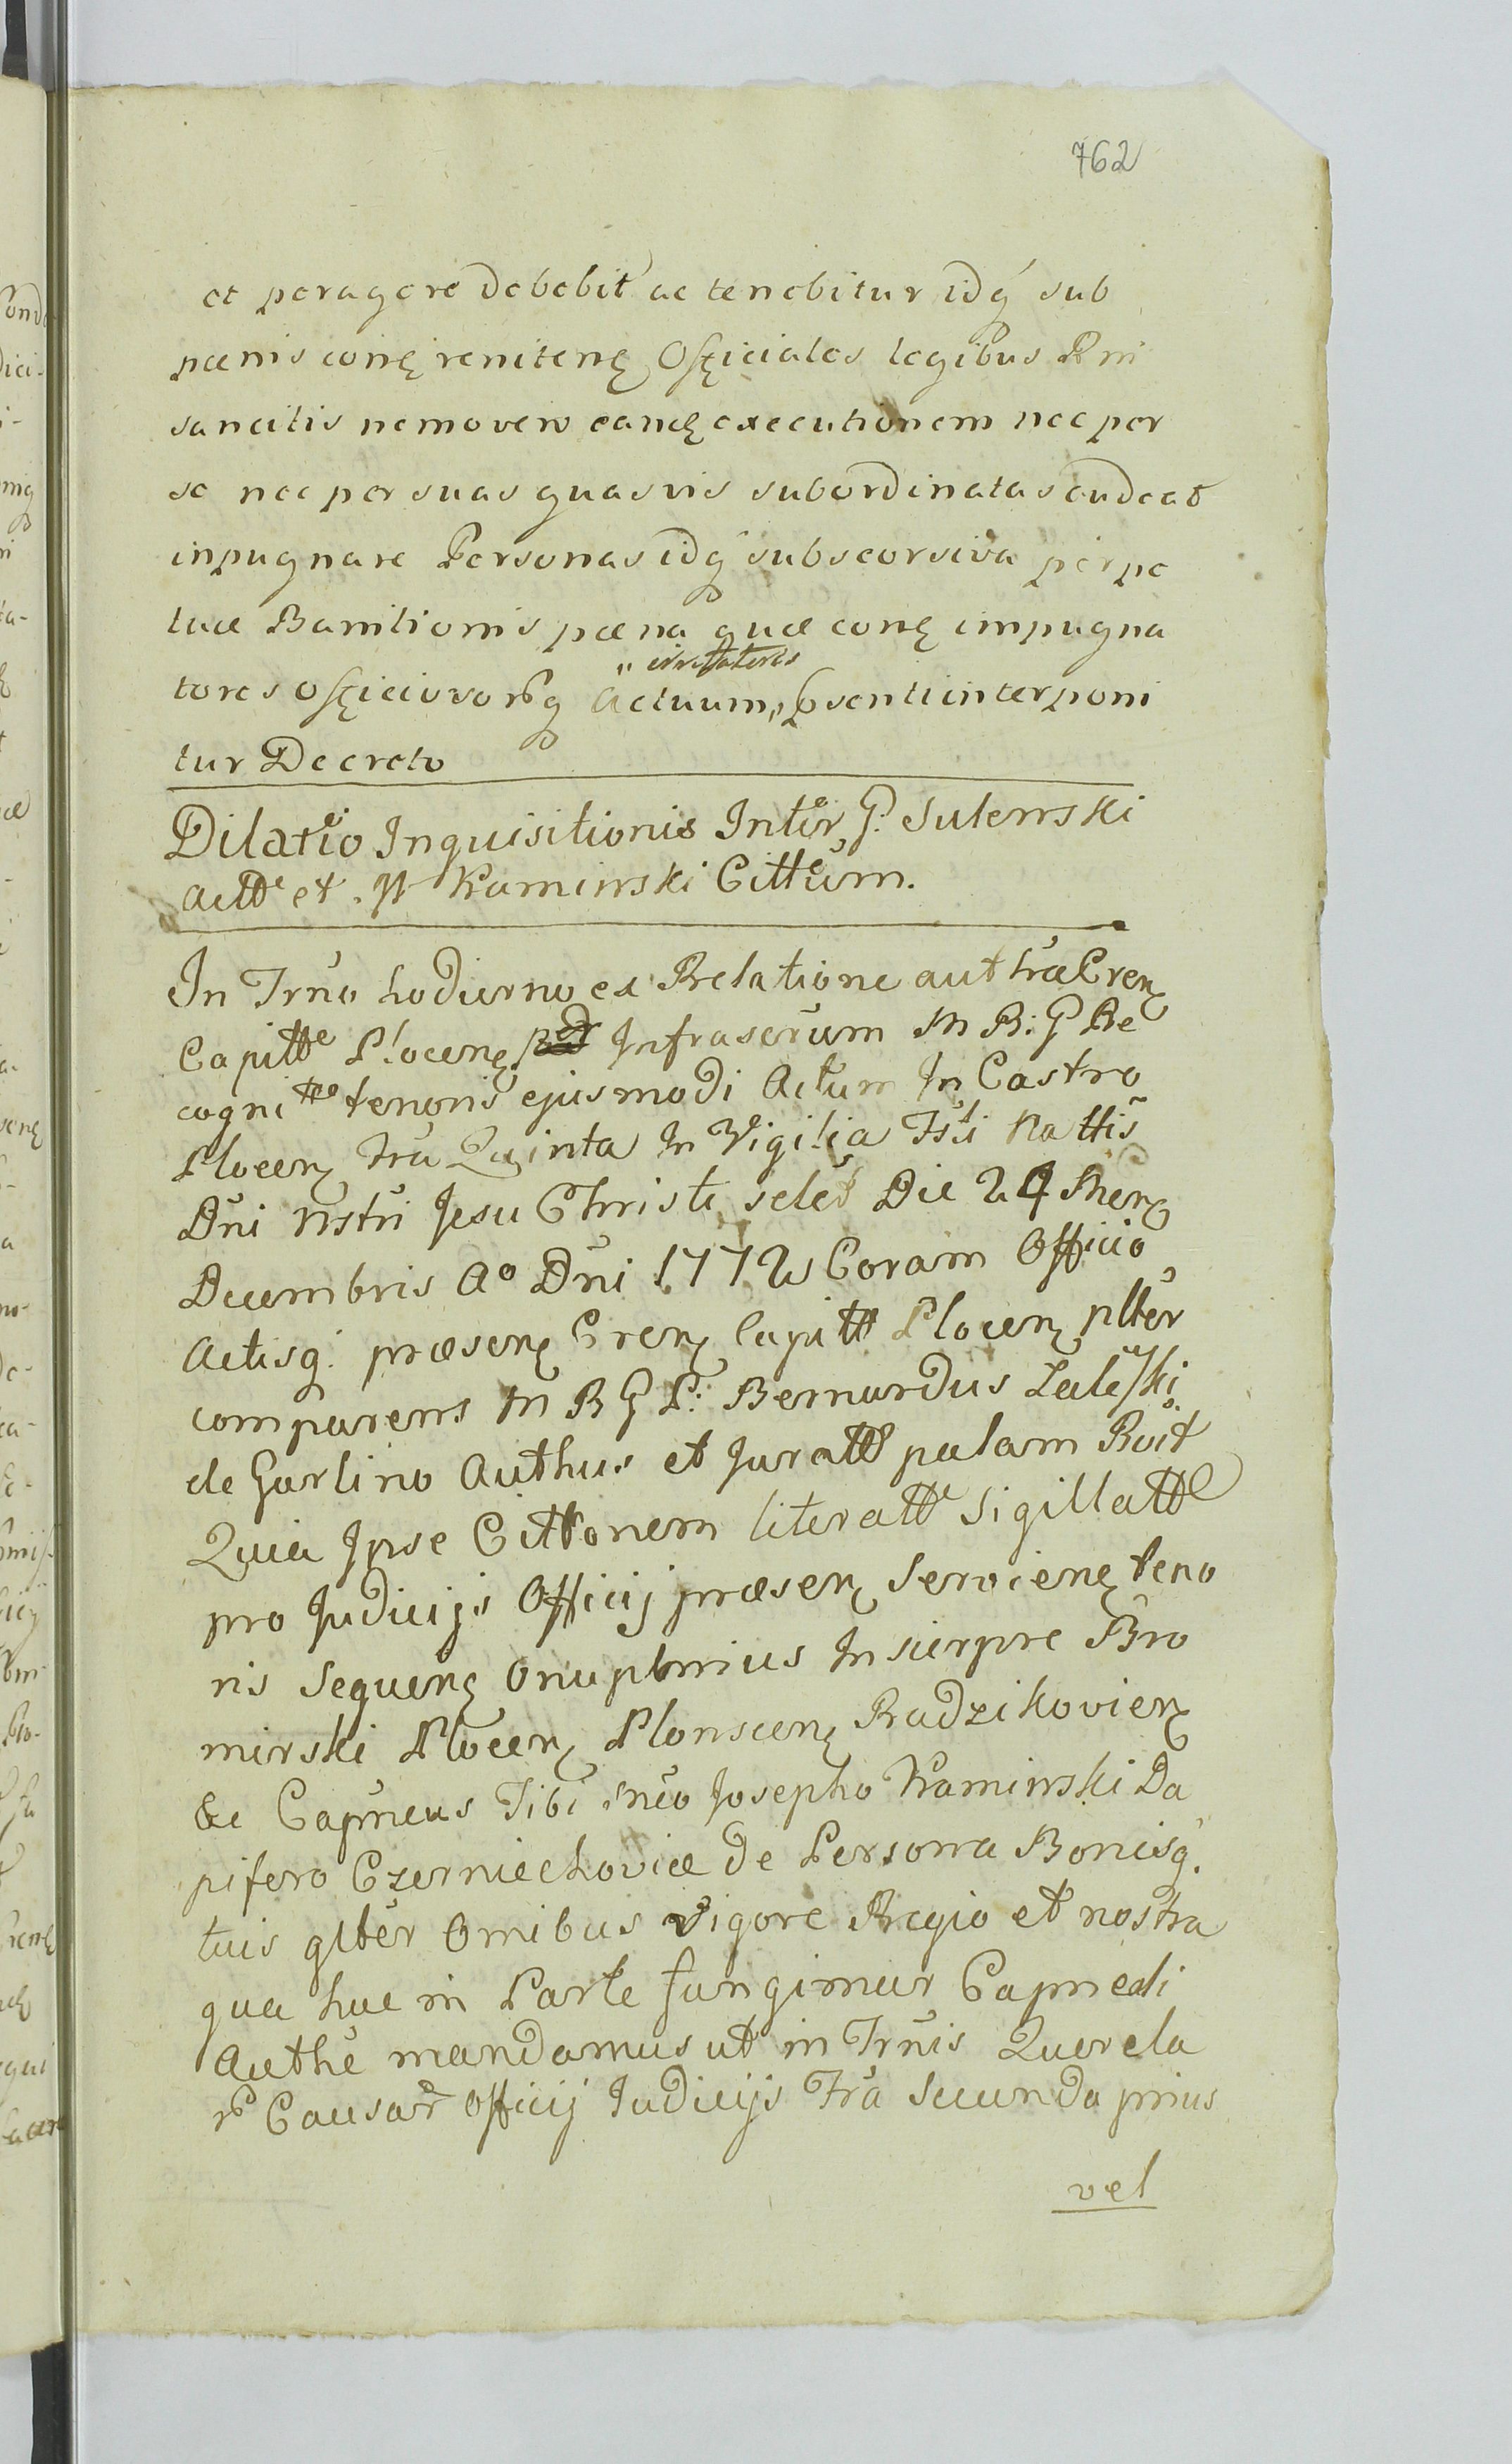 762
et peragere debebit ac tenebitur idq́ sub
pœnis conȩ renitenȩ Officiales legibus Rni
sancitis nemo vero eandȩ executionem nec per
se nec per suas quasvis subordinatas audeat
inpugnare Personas idq́ sub seorsiva perpe
tuæ Bannitionis pœna quæ conȩ impugna
" irritatores
tores officiosorȩq Actuum," psenti interponi
tur Decreto
Dilatio Inquisitionis Inter G: Sulewski
actt et . M Kaminski Cittum.
In Trño hodierno ex Relatione authæ Cren
Capitte Plocenȩ Infrascrum M R: G Re
cognitte tenoris ejusmodi Actum In Castro
Plocen fra Quinta In Vigilia Fsti Nattis
Dñi nstri Jesu Christi scled Die 24 Mens
Decembris Aº Dñi 1772 Coram Officio
Actisq: præsen Cren Capitt Plocen plter
comparens M R G P: Bernardus Zaleski
de Garlino Authus et Juratt palam Roit
Quia Ipse Cittonem literatt Sigillatt
pro Judicijs Officij præsen Servienȩ teno
ris Sequenȩ Onuphrius In Sierpre Bro
mirski Plocen Plonscen Radzikovien
&c Capneus Tibi Mco Josepho Kaminski Da
pifero Czerniechoviæ de Persona Bonisq.
tuis glter Omibus vigore Regio et nostra
qua hac in Parte fungimur Capneali
Authe mandamus ut in Trñis Querela
rȩ Causarȩ Officij Judicijs Fra Secunda prius
vel